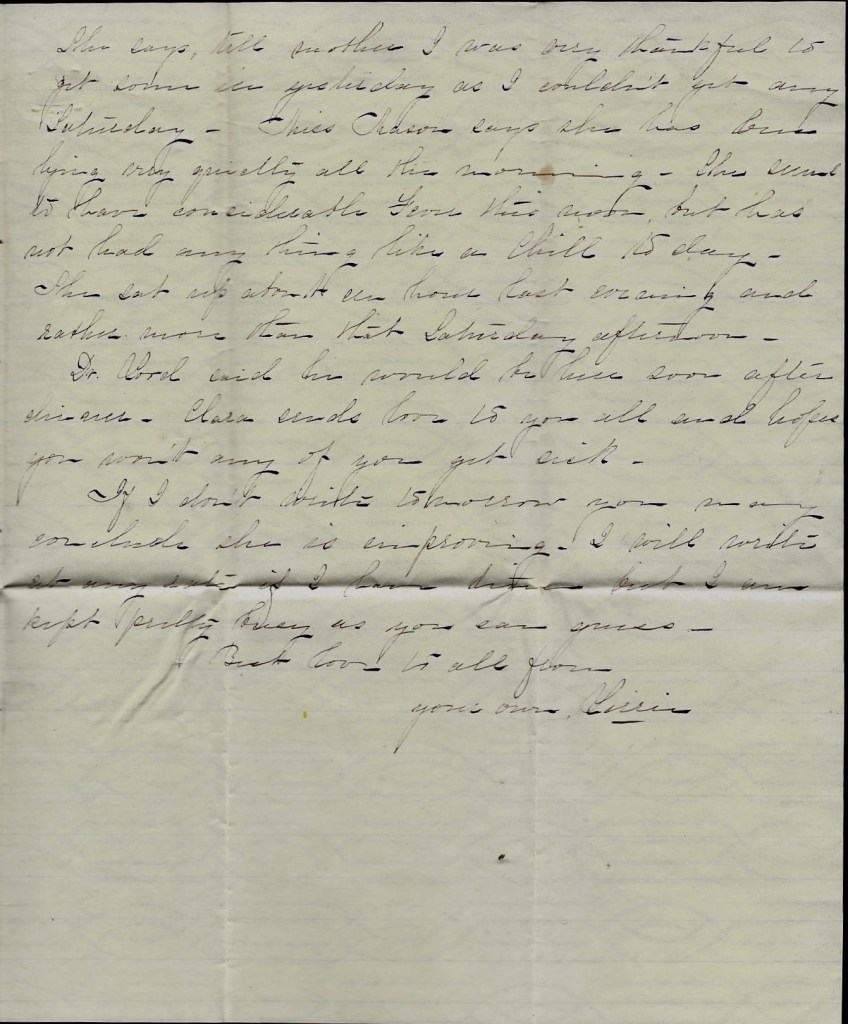 She says, tell mother I was very thankful to
get some ice yesterday as I couldn't get any
Saturday - Miss Mason says she has been
lying very quietly all the morning - She seems
to have considerable Fever this noon, but has
not had any thing like a Chill to day -
She sat up about an hour last evening and
rather more than that Saturday afternoon -
Dr. Lord said he would be here soon after
dinner - Clara sends love to you all and hopes
you won't any of you get sick -
If I don't write tomorrow you may
conclude she is improving - I will write
at any rate if I have time but I am
kept pretty busy as you can guess -
Best love to all from
your own Lizzie